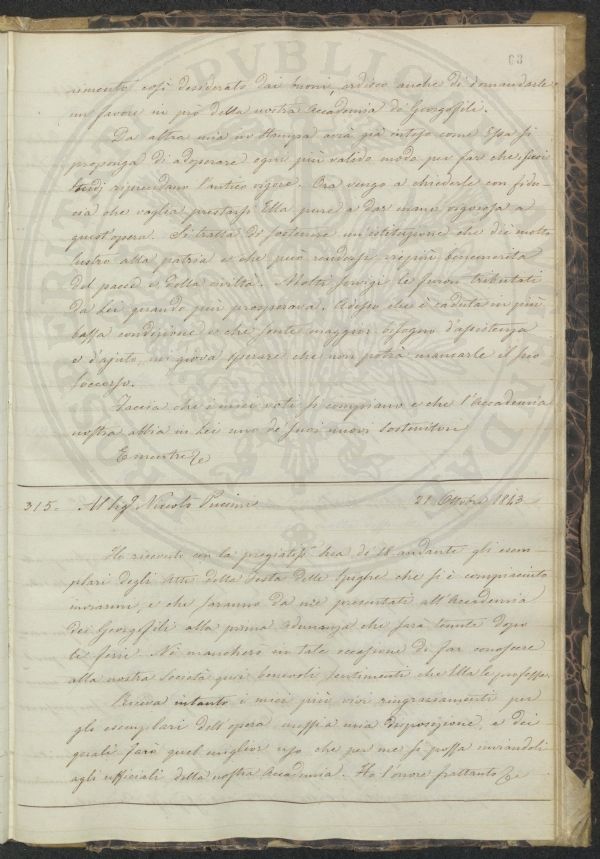 63
rimento così desiderato dai buoni, ardisco anche di domandarle
un favore in prò della nostra Accademia de' Georgofili.
Da altra mia in stampa avrà già inteso come Essa si
proponga di adoperare ogni più valido modo per far che i suoi
studj riprendano l'antico vigore. Ora vengo a chiederle con fidu-
cia che voglia prestarsi Ella pure a dar mano vigorosa a
quest'opera. Si tratta di sostenere un'istituzione che diè molto
lustro alla patria e che può rendersi vie più benemerita
del paese e della civiltà. Molti servigi le furon tributati
da Lei quando più prosperava. Adesso che è caduta in più
bassa condizione e che sente maggior bisogno d'assistenza
e d'ajuto, mi giova sperare che non potrà mancarle il suo
soccorso.
Faccia che i miei voti si compiano e che l'Accademia
nostra abbia in Lei uno de' suoi nuovi sostenitori
E mentre
315. Al Sig. Niccolò Puccini 21 Ottobre 1843
Ho ricevuti con la pregiatiss. sua de' 18 andante gli esem-
plari degli Atti della Festa delle Spighe che si è compiaciuto
inviarmi, e che saranno da me presentati all'Accademia
dei Georgofili alla prima Adunanza che sarà tenuta dopo
le ferie. Nè mancherò in tale occasione di far conoscere
alla nostra Società quai benevoli sentimenti che Ella le professa.
Riceva intanto i miei più vivi ringraziamenti per
gli esemplari dell'opera messi a mia disposizione, e dei
quali farò quel miglior uso che per me si possa inviandoli
agli uffiziali della nostra Accademia. Ho l'onore frattanto